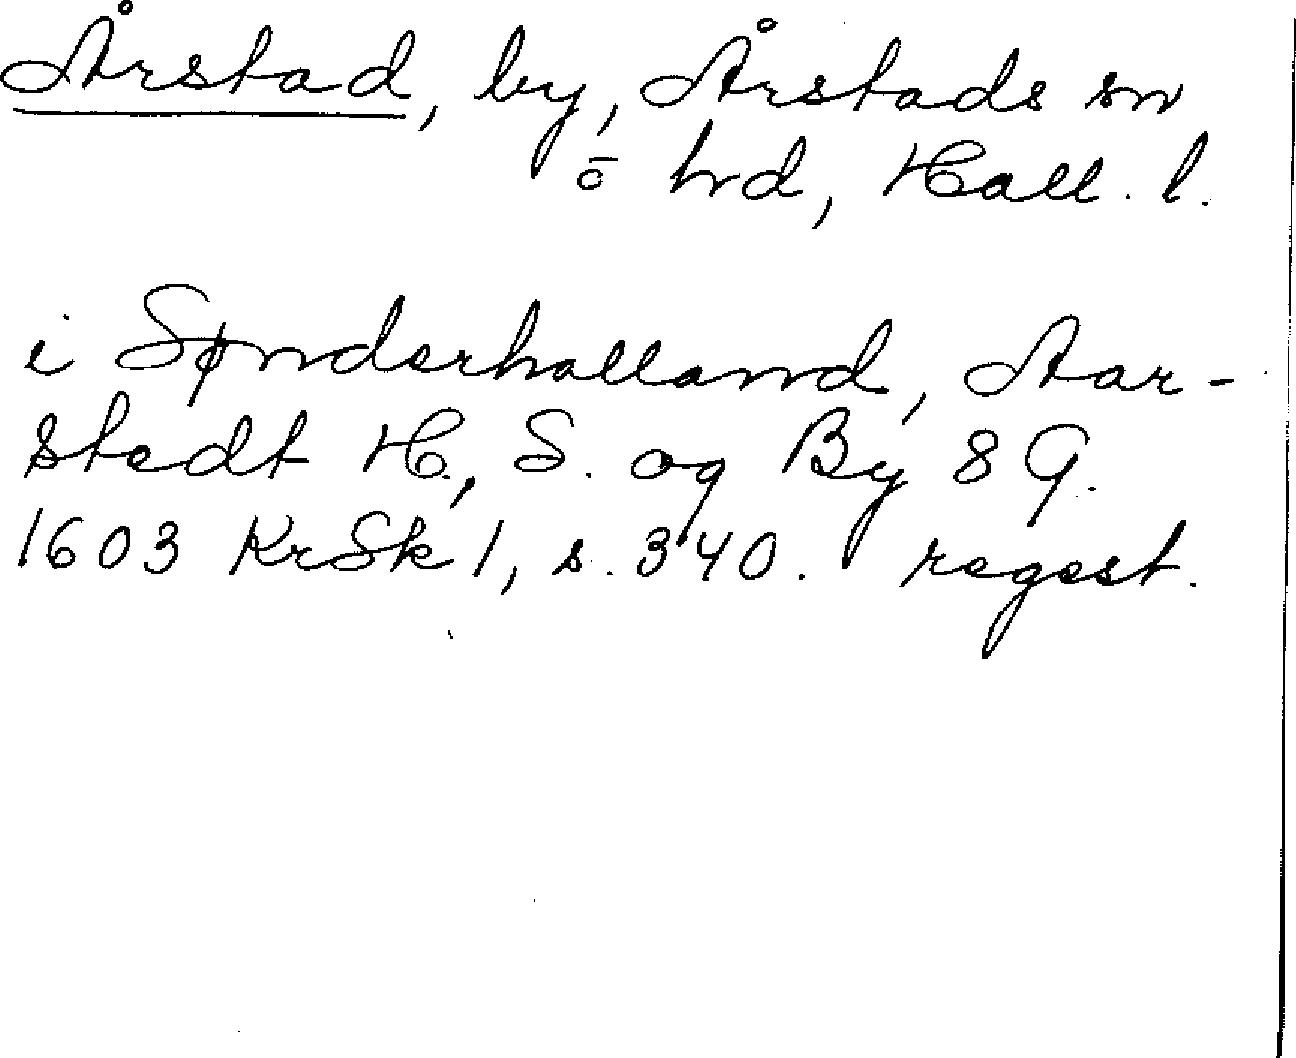 Årstad, by, Årstads sn
o hd, Hall. l.
i Sønderhalland, Aar-
stedt H., S. og By 8 G.
1603 KrSk 1, s. 340. regest.